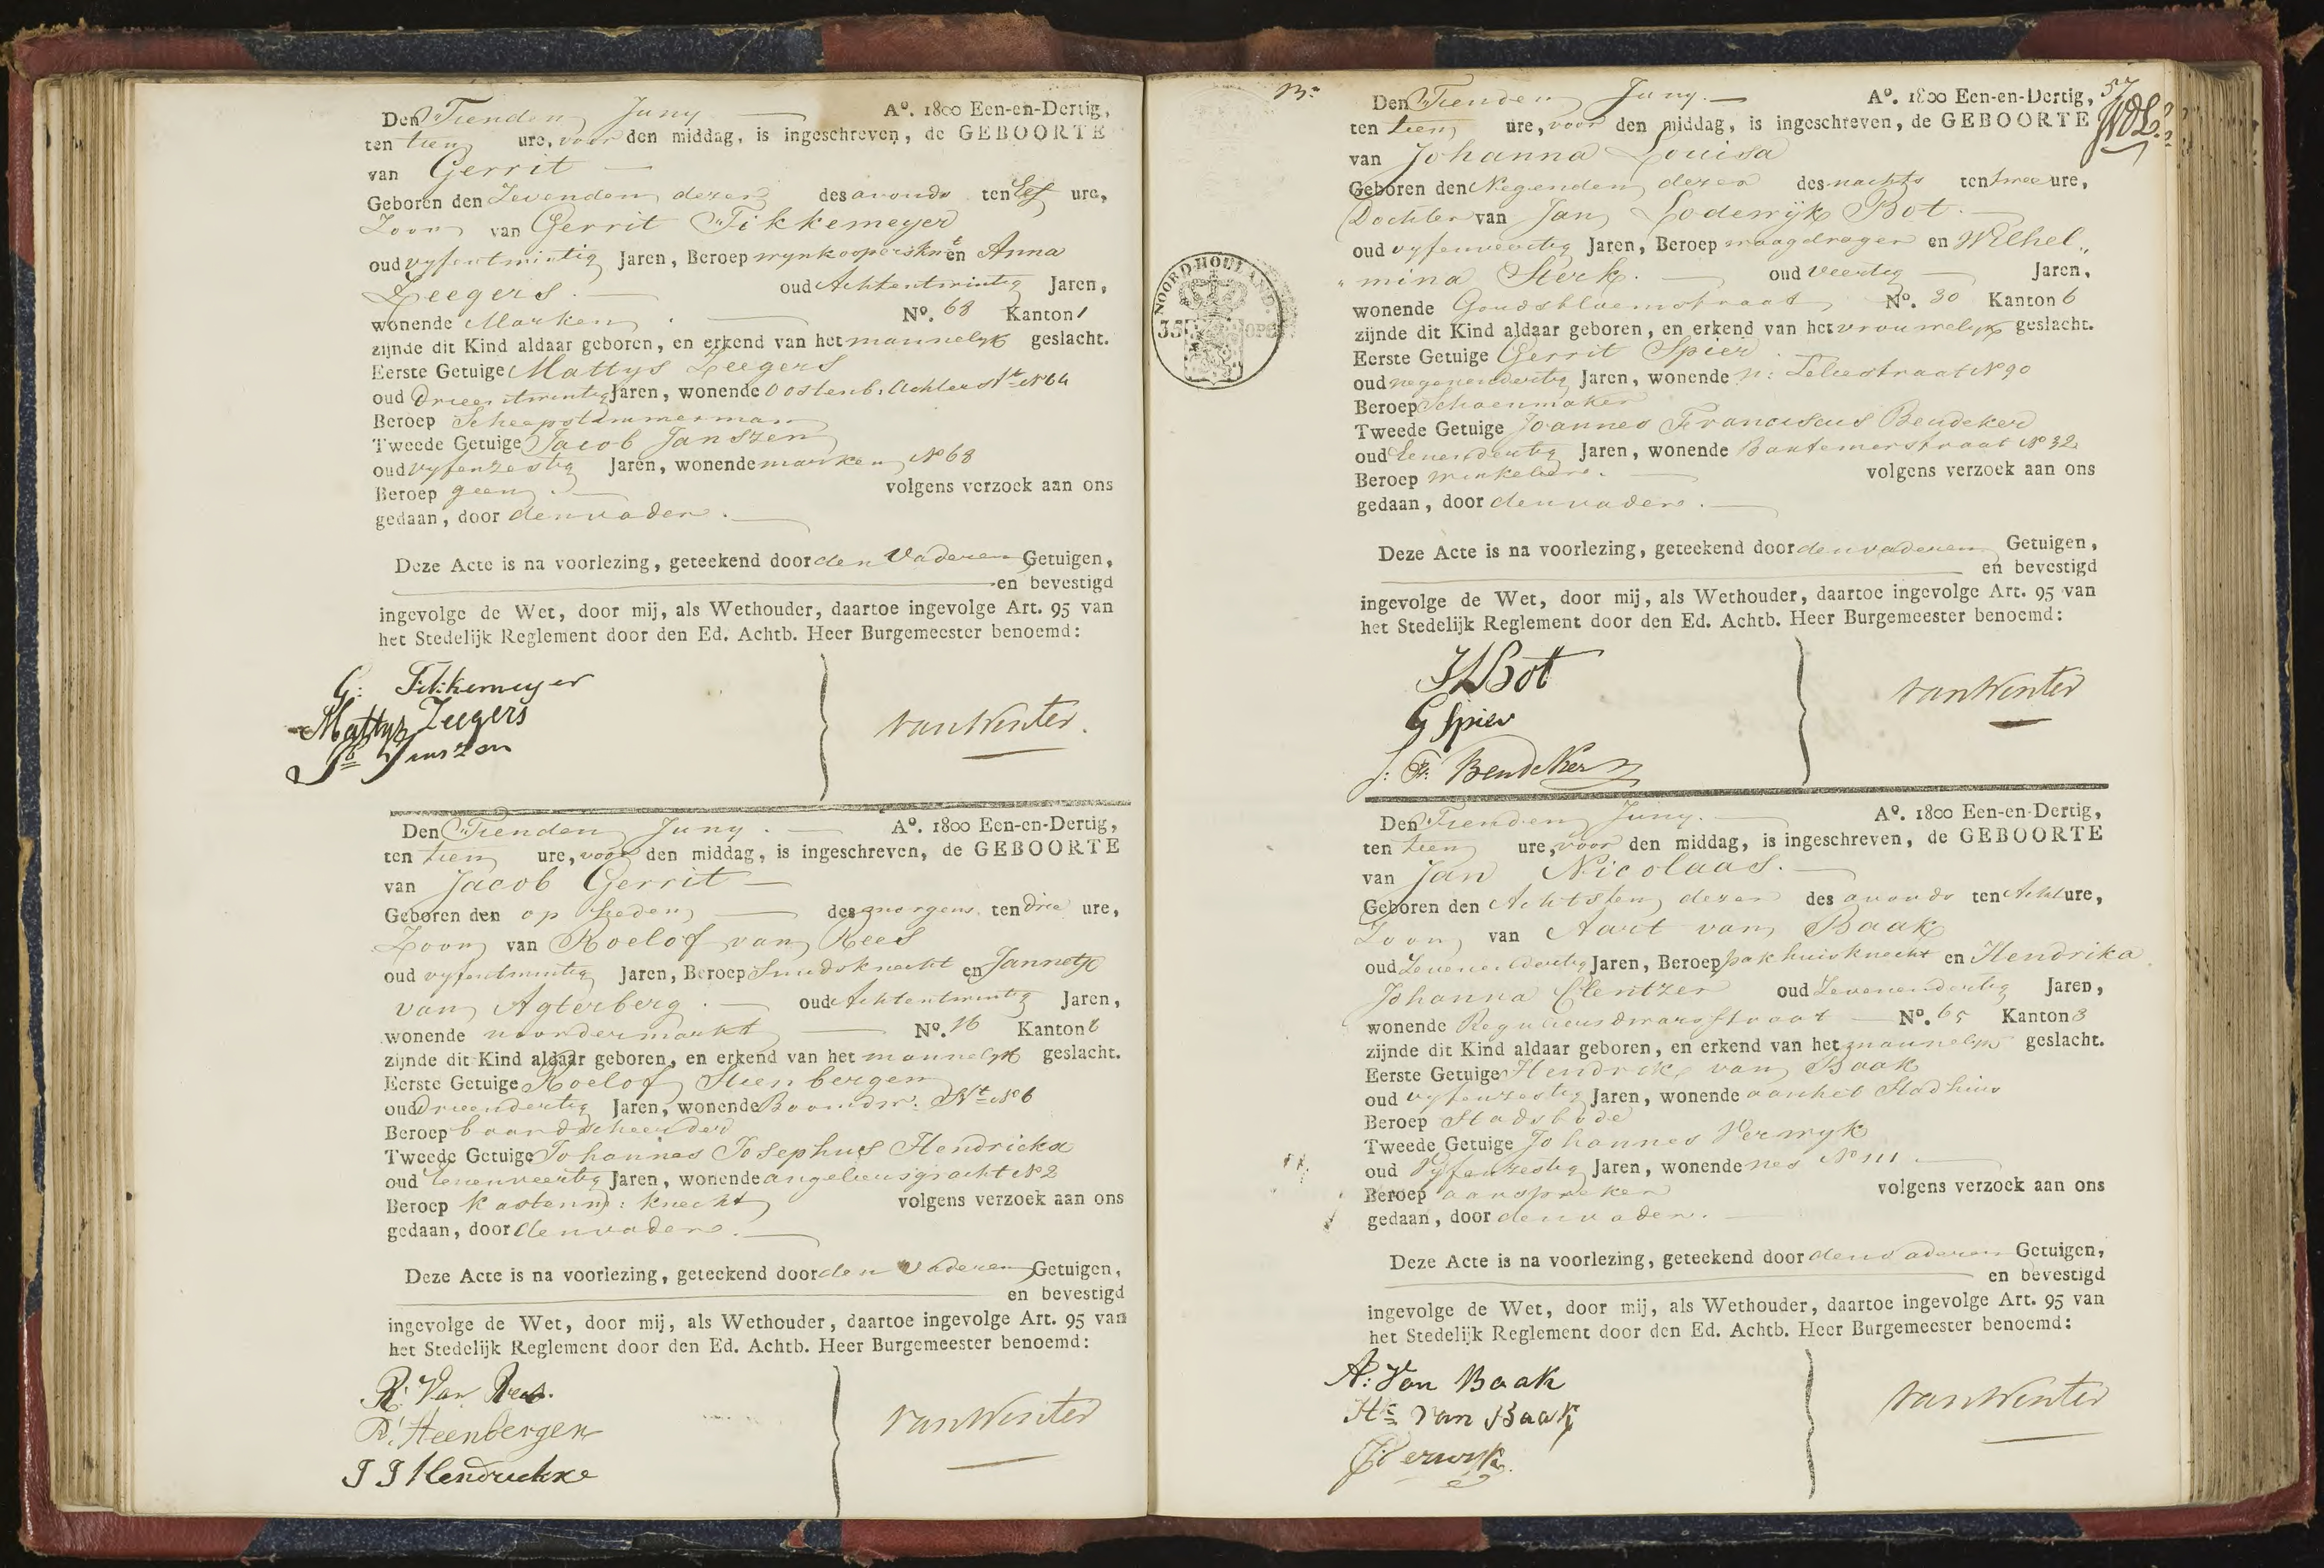 Den Tienden Juny A°. 1800 Een-en-Dertig,
ten tien ure, voor den middag, is ingeschreven, de GEBOORTE
van Gerrit
Geboren den Zevenden dezer des avonds ten Elf ure,
Zoon van Gerrit Fikkemeyer
oud vyfentwintig Jaren, Beroep wynkoopersknt en Anna
Zeegers. oud Achtentwintig Jaren,
wonende Marken N°. 68 Kanton 1
zijnde dit Kind aldaar geboren, en erkend van het mannelyk geslacht.
Eerste Getuige Mattys Zeegers
oud Drieentwintig Jaren, wonende Oostenb. Achterst N° 64
Beroep Scheepstimmerman
Tweede Getuige Jacob Janszen
oud vyfenzestig Jaren, wonende marken N° 68
Beroep geen volgens verzoek aan ons
gedaan, door den vader.
Deze Acte is na voorlezing, geteekend door den Vader en Getuigen,
en bevestigd
ingevolge de Wet, door mij, als Wethouder, daartoe ingevolge Art. 95 van
het Stedelijk Reglement door den Ed. Achtb. Heer Burgemeester benoemd:
G: Fikkemeyer
Mattys Zeegers
Jb Janszen
van Winter
Den Tienden Juny. A°. 1800 Een-en-Dertig,
ten tien ure, voor den middag, is ingeschreven, de GEBOORTE
van Jacob Gerrit
Geboren den op heden des morgens ten drie ure,
Zoon van Roelof van Rees
oud vyfentwintig Jaren, Beroep Smidsknecht en Jannetje
van Agterberg. oud Achtentwintig Jaren,
wonende noordermarkt N°. 16 Kanton 6
zijnde dit Kind aldaar geboren, en erkend van het mannelyk geslacht.
Eerste Getuige Roelof Steenbergen
oud Drieendertig Jaren, wonende Boomdw: St N° 6
Beroep baardscheerder
Tweede Getuige Johannes Josephus Hendrickx
oud Zevenveertig Jaren, wonende angeliersgracht N° 2
Beroep kastenm: knecht volgens verzoek aan ons
gedaan, door den vader.
Deze Acte is na voorlezing, geteekend door den Vader en Getuigen,
en bevestigd
ingevolge de Wet, door mij, als Wethouder, daartoe ingevolge Art. 95 van
het Stedelijk Reglement door den Ed. Achtb. Heer Burgemeester benoemd:
R: Van Rees.
R: Steenbergen
J J Hendrickx
van Winter
NOORD HOLLAND.
35 OPC
B:
57
Den Tienden Juny. A°. 1800 Een-en-Dertig,
ten tien ure, voor den middag, is ingeschreven, de GEBOORTE
van Johanna Louisa
Geboren den Negenden dezer des nachts ten twee ure,
Dochter van Jan Lodewyk Bot.
oud vyfenveertig Jaren, Beroep waagdrager en Wilhel„
„mina Sterk. oud Veertig Jaren,
wonende Goudsbloemstraat N°. 30 Kanton 6
zijnde dit Kind aldaar geboren, en erkend van het vrouwelyk geslacht.
Eerste Getuige Gerrit Spier
oud negenendertig Jaren, wonende n: Leliestraat N° 90
Beroep Schoenmaker
Tweede Getuige Joannes Franciscus Beudeker
oud Zevendertig Jaren, wonende Bantemerstraat N° 32
Beroep winkelier. volgens verzoek aan ons
gedaan, door den vader.
Deze Acte is na voorlezing, geteekend door den vader en Getuigen,
en bevestigd
ingevolge de Wet, door mij, als Wethouder, daartoe ingevolge Art. 95 van
het Stedelijk Reglement door den Ed. Achtb. Heer Burgemeester benoemd:
J L Bot
G Spier
J: F: Beudeker
van Winter
Den Tienden Juny. A°. 1800 Een-en-Dertig,
ten tien ure, voor den middag, is ingeschreven, de GEBOORTE
van Jan Nicolaas.
Geboren den Achtsten dezer des avonds ten Acht ure,
Zoon van Aart van Baak
oud Zevenendertig Jaren, Beroep pakhuisknecht en Hendrika
Johanna Clentzer oud Zevenendertig Jaren,
wonende Reguliersdwarsstraat N°. 65 Kanton 3
zijnde dit Kind aldaar geboren, en erkend van het mannelyk geslacht.
Eerste Getuige Hendrik van Baak
oud vyfenzestig Jaren, wonende aan het Stadhuis
Beroep Stadsbode
Tweede Getuige Johannes Verwyk
oud Vyfenzestig Jaren, wonende nes N° 111
Beroep aanspreker volgens verzoek aan ons
gedaan, door den vader.
Deze Acte is na voorlezing, geteekend door den vader en Getuigen,
en bevestigd
ingevolge de Wet, door mij, als Wethouder, daartoe ingevolge Art. 95 van
het Stedelijk Reglement door den Ed. Achtb. Heer Burgemeester benoemd:
A: Van Baak
Hk Van Baak
J Verwyk
van Winter